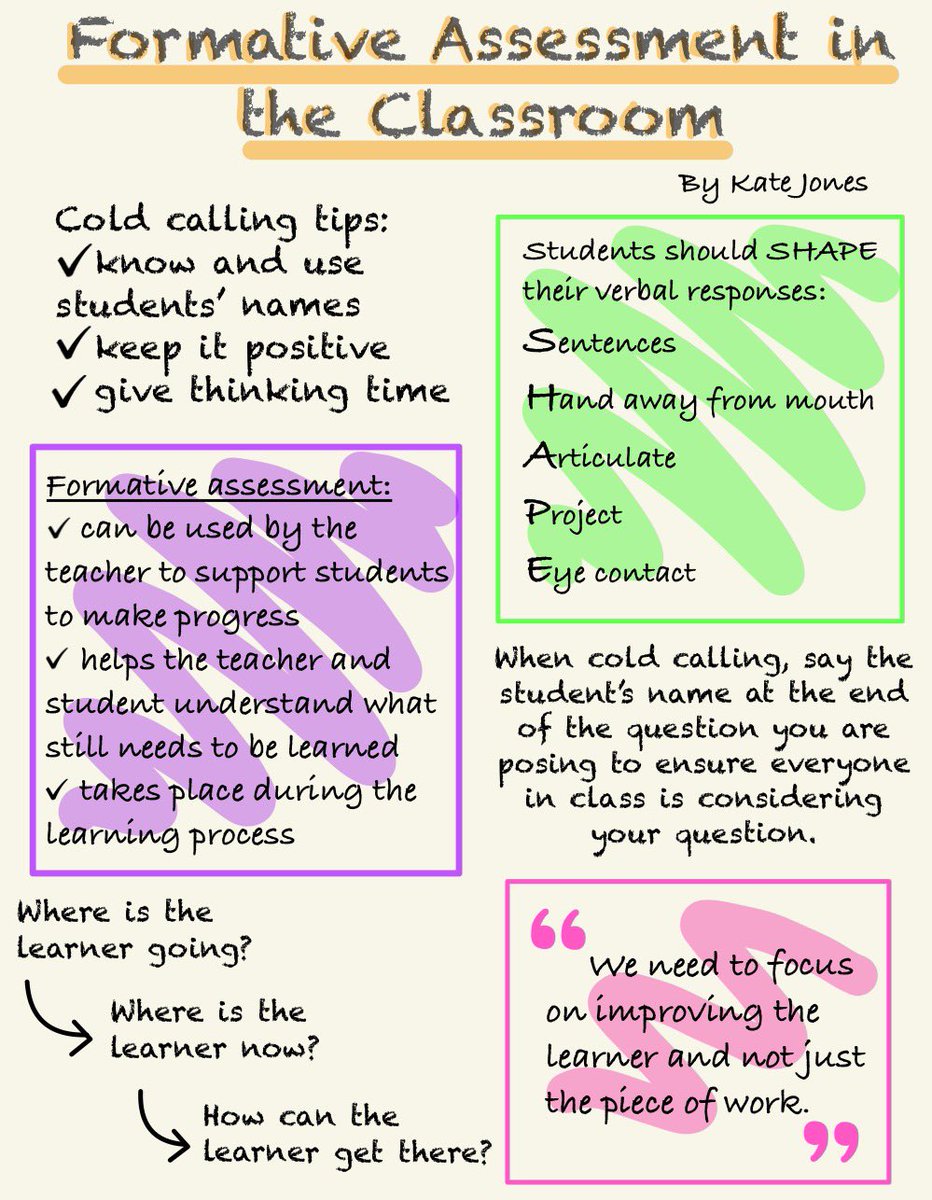 Formative Assessment in
the Classroom
By Kate Jones
Cold calling tips:
✓know and use
students' names
✓keep it positive
✓ give thinking time
Students should SHAPE
their verbal responses:
Sentences
Hand away from mouth
Articulate
Project
Eye contact
Formative assessment:
✓ can be used by the
teacher to support students
to make progress
✓ helps the teacher and
student understand what
still needs to be learned
✓ takes place during the
learning process
When cold calling, say the
student's name at the end
of the question you are
posing to ensure everyone
in class is considering
your question.
Where is the
learner going?
Where is the
learner now?
How can the
learner get there?
“
We need to focus
on improving the
learner and not just
the piece of work.
”